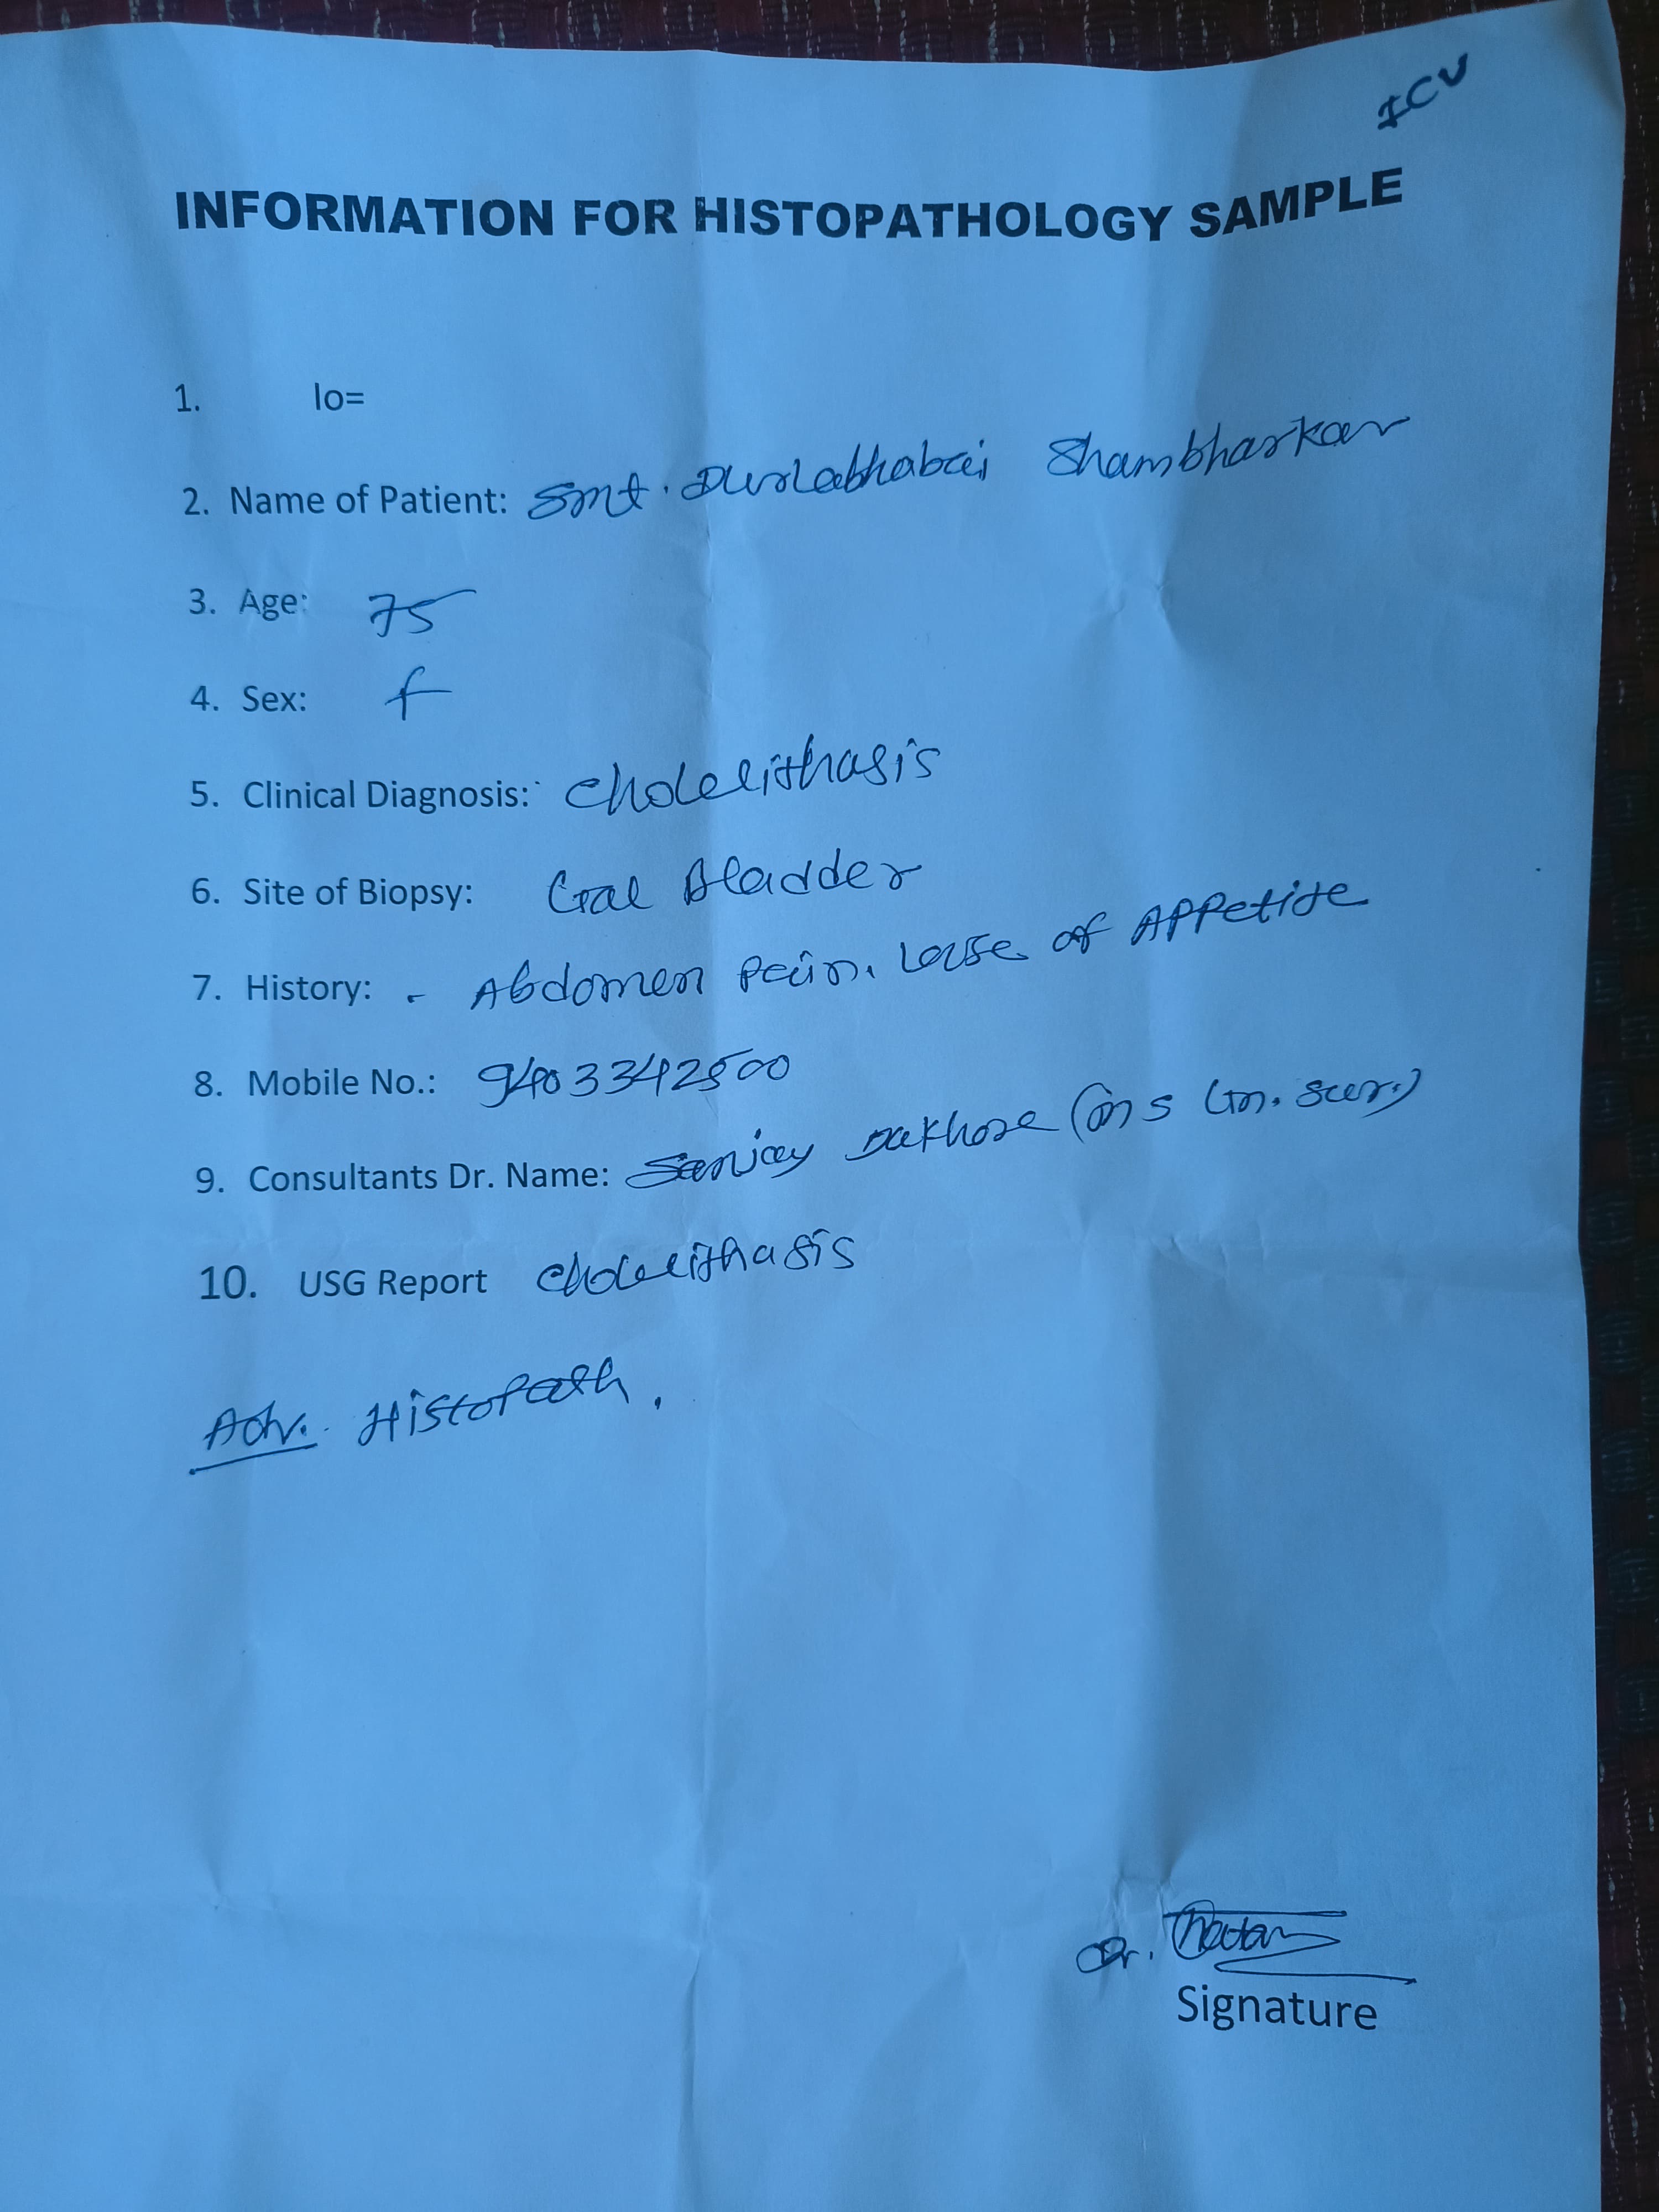 ICU
INFORMATION FOR HISTOPATHOLOGY SAMPLE
1. Io=
2. Name of Patient: Smt. Durlabhabai Shambharkar
3. Age: 75
4. Sex: f
5. Clinical Diagnosis: Cholelithasis
6. Site of Biopsy: Gal Bladder
7. History: - Abdomen Pain. Lose of Appetite
8. Mobile No.: 9403342500
9. Consultants Dr. Name: Sanjay Dakhore (MS Gn. Sur.)
10. USG Report Cholelithasis
Adv. Histopath.
Dr.
Signature